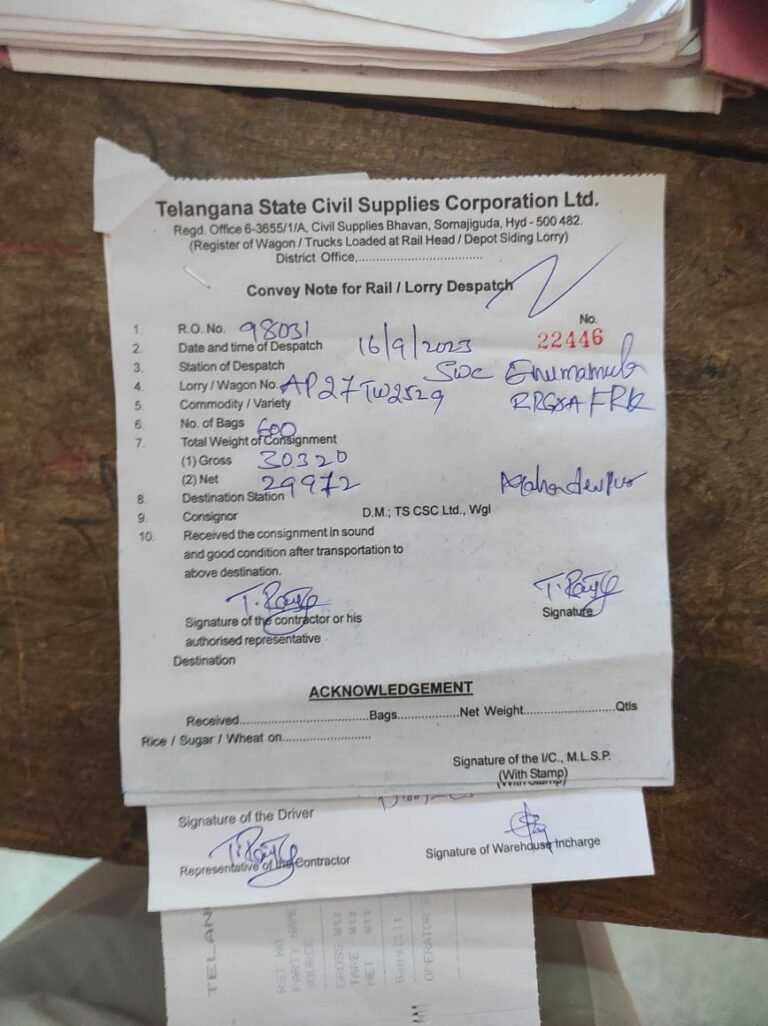 Telangana State Civil Supplies Corporation Ltd.
Regd. Office 6-3655/1/A, Civil Supplies Bhavan, Somajiguda, Hyd - 500 482.
(Register of Wagon / Trucks Loaded at Rail Head / Depot Siding Lorry)
District Office,..................................
Convey Note for Rail / Lorry Despatch
No.
22446
1. R.O. No. 98031
2. Date and time of Despatch 16/9/2023
3. Station of Despatch SWC Enumamula
4. Lorry / Wagon No. AP27TW2529
5. Commodity / Variety FRK
6. No. of Bags 600
7. Total Weight of Consignment
(1) Gross 30320
(2) Net 29972
8. Destination Station Mahadevpur
9. Consignor D.M.; TS CSC Ltd., Wgl
10. Received the consignment in sound
and good condition after transportation to
above destination.
Signature of the contractor or his
authorised representative
Signature
Destination
ACKNOWLEDGEMENT
Received....................................Bags.................Net Weight.........................Qtls
Rice / Sugar / Wheat on.........................
Signature of the I/C., M.L.S.P.
(With Stamp)
(With Stamp)
Signature of the Driver
Representative of the Contractor
Signature of Warehouse Incharge
TELAN
RST NO
PARTY NAME
SOURCE
GROSS Wt:
TARE - Wt:
NET Wt:
Bags(1):
OPERATOR S